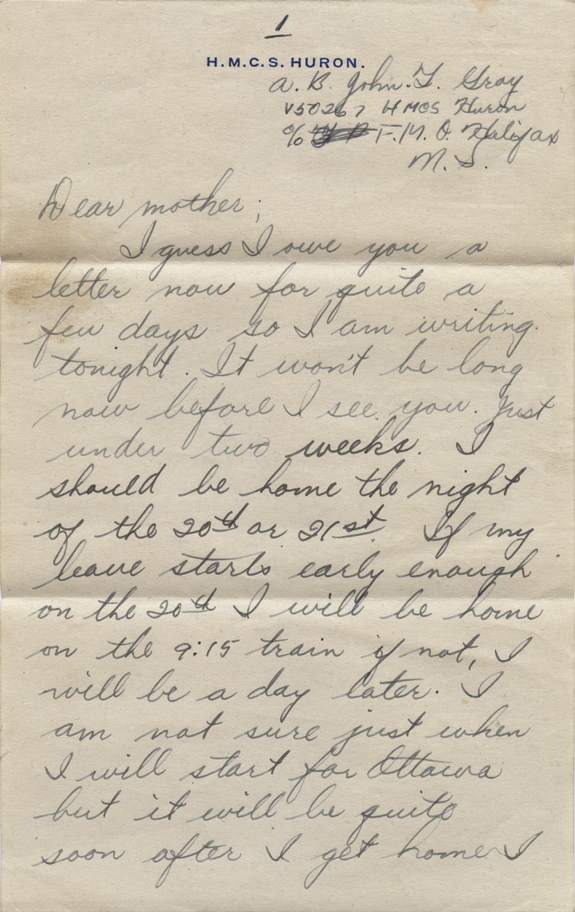 1
H.M.C.S. HURON.
A. B. John. T. Gray
V50267 HMCS Huron
c/o F.M.O. Halifax
N. S.
Dear mother;
I guess I owe you a
letter now for quite a
few days so I am writing
tonight. It won't be long
now before I see you. Just
under two weeks. I
should be home the night
of the 20th or 21st. If my
leave starts early enough
on the 20th I will be home
on the 9:15 train if not, I
will be a day later. I
am not sure just when
I will start for Ottawa
but it will be quite
soon after I get home I